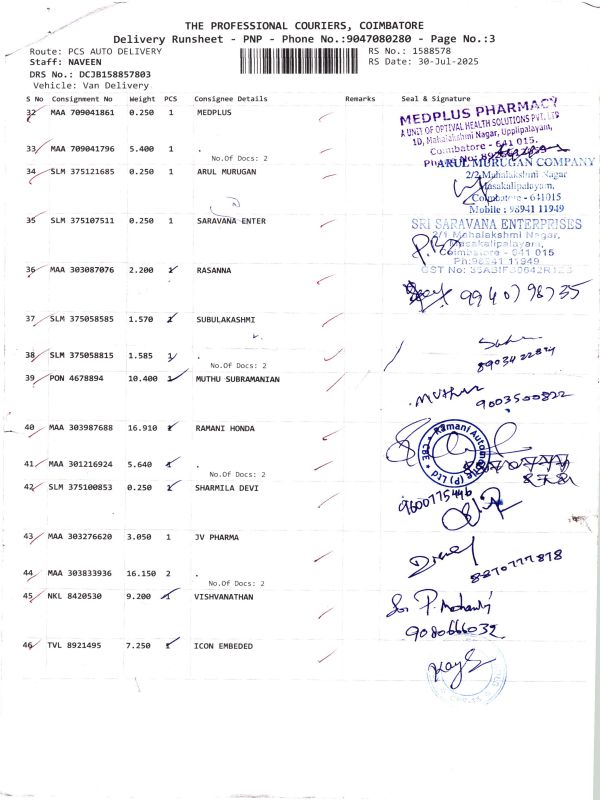 THE PROFESSIONAL COURIERS, COIMBATORE
Delivery Runsheet - PNP - Phone No.:9047080280 - Page No.:3
Route: PCS AUTO DELIVERY
RS No.: 1588578
Staff: NAVEEN
RS Date: 30-Jul-2025
DRS No.: DCJB158857803
Vehicle: Van Delivery
S No Consignment No Weight PCS Consignee Details Remarks Seal & Signature
32 MAA 709041861 0.250 1 MEDPLUS
MEDPLUS PHARMACY
A UNIT OF OPTIVAL HEALTH SOLUTIONS PVT. LTD
1D, Mahalakshmi Nagar, Uppilipalayam,
Coimbatore - 641 015.
33 MAA 709041796 5.400 1 .
No.Of Docs: 2
34 SLM 375121685 0.250 1 ARUL MURUGAN
ARUL MURUGAN COMPANY
2/2 Mahalakshmi Nagar
Masakalipalayam,
Coimbatore - 641015
Mobile : 98941 11949
35 SLM 375107511 0.250 1 SARAVANA ENTER
SRI SARAVANA ENTERPRISES
2/1 Mahalakshmi Nagar,
Masakalipalayam,
Coimbatore - 641 015
Ph:98941 11949
36 MAA 303087076 2.200 1 RASANNA
9940798735
37 SLM 375058585 1.570 1 SUBULAKASHMI
38 SLM 375058815 1.585 1 .
No.Of Docs: 2
8903422894
39 PON 4678894 10.400 1 MUTHU SUBRAMANIAN
Muthu
9003500822
40 MAA 303987688 16.910 1 RAMANI HONDA
Ramani Automobile (P) Ltd * CBE *
41 MAA 301216924 5.640 1 .
No.Of Docs: 2
42 SLM 375100853 0.250 1 SHARMILA DEVI
9600775446
43 MAA 303276620 3.050 1 JV PHARMA
44 MAA 303833936 16.150 2 .
No.Of Docs: 2
8870777878
45 NKL 8420530 9.200 1 VISHVANATHAN
9080666032
46 TVL 8921495 7.250 1 ICON EMBEDED